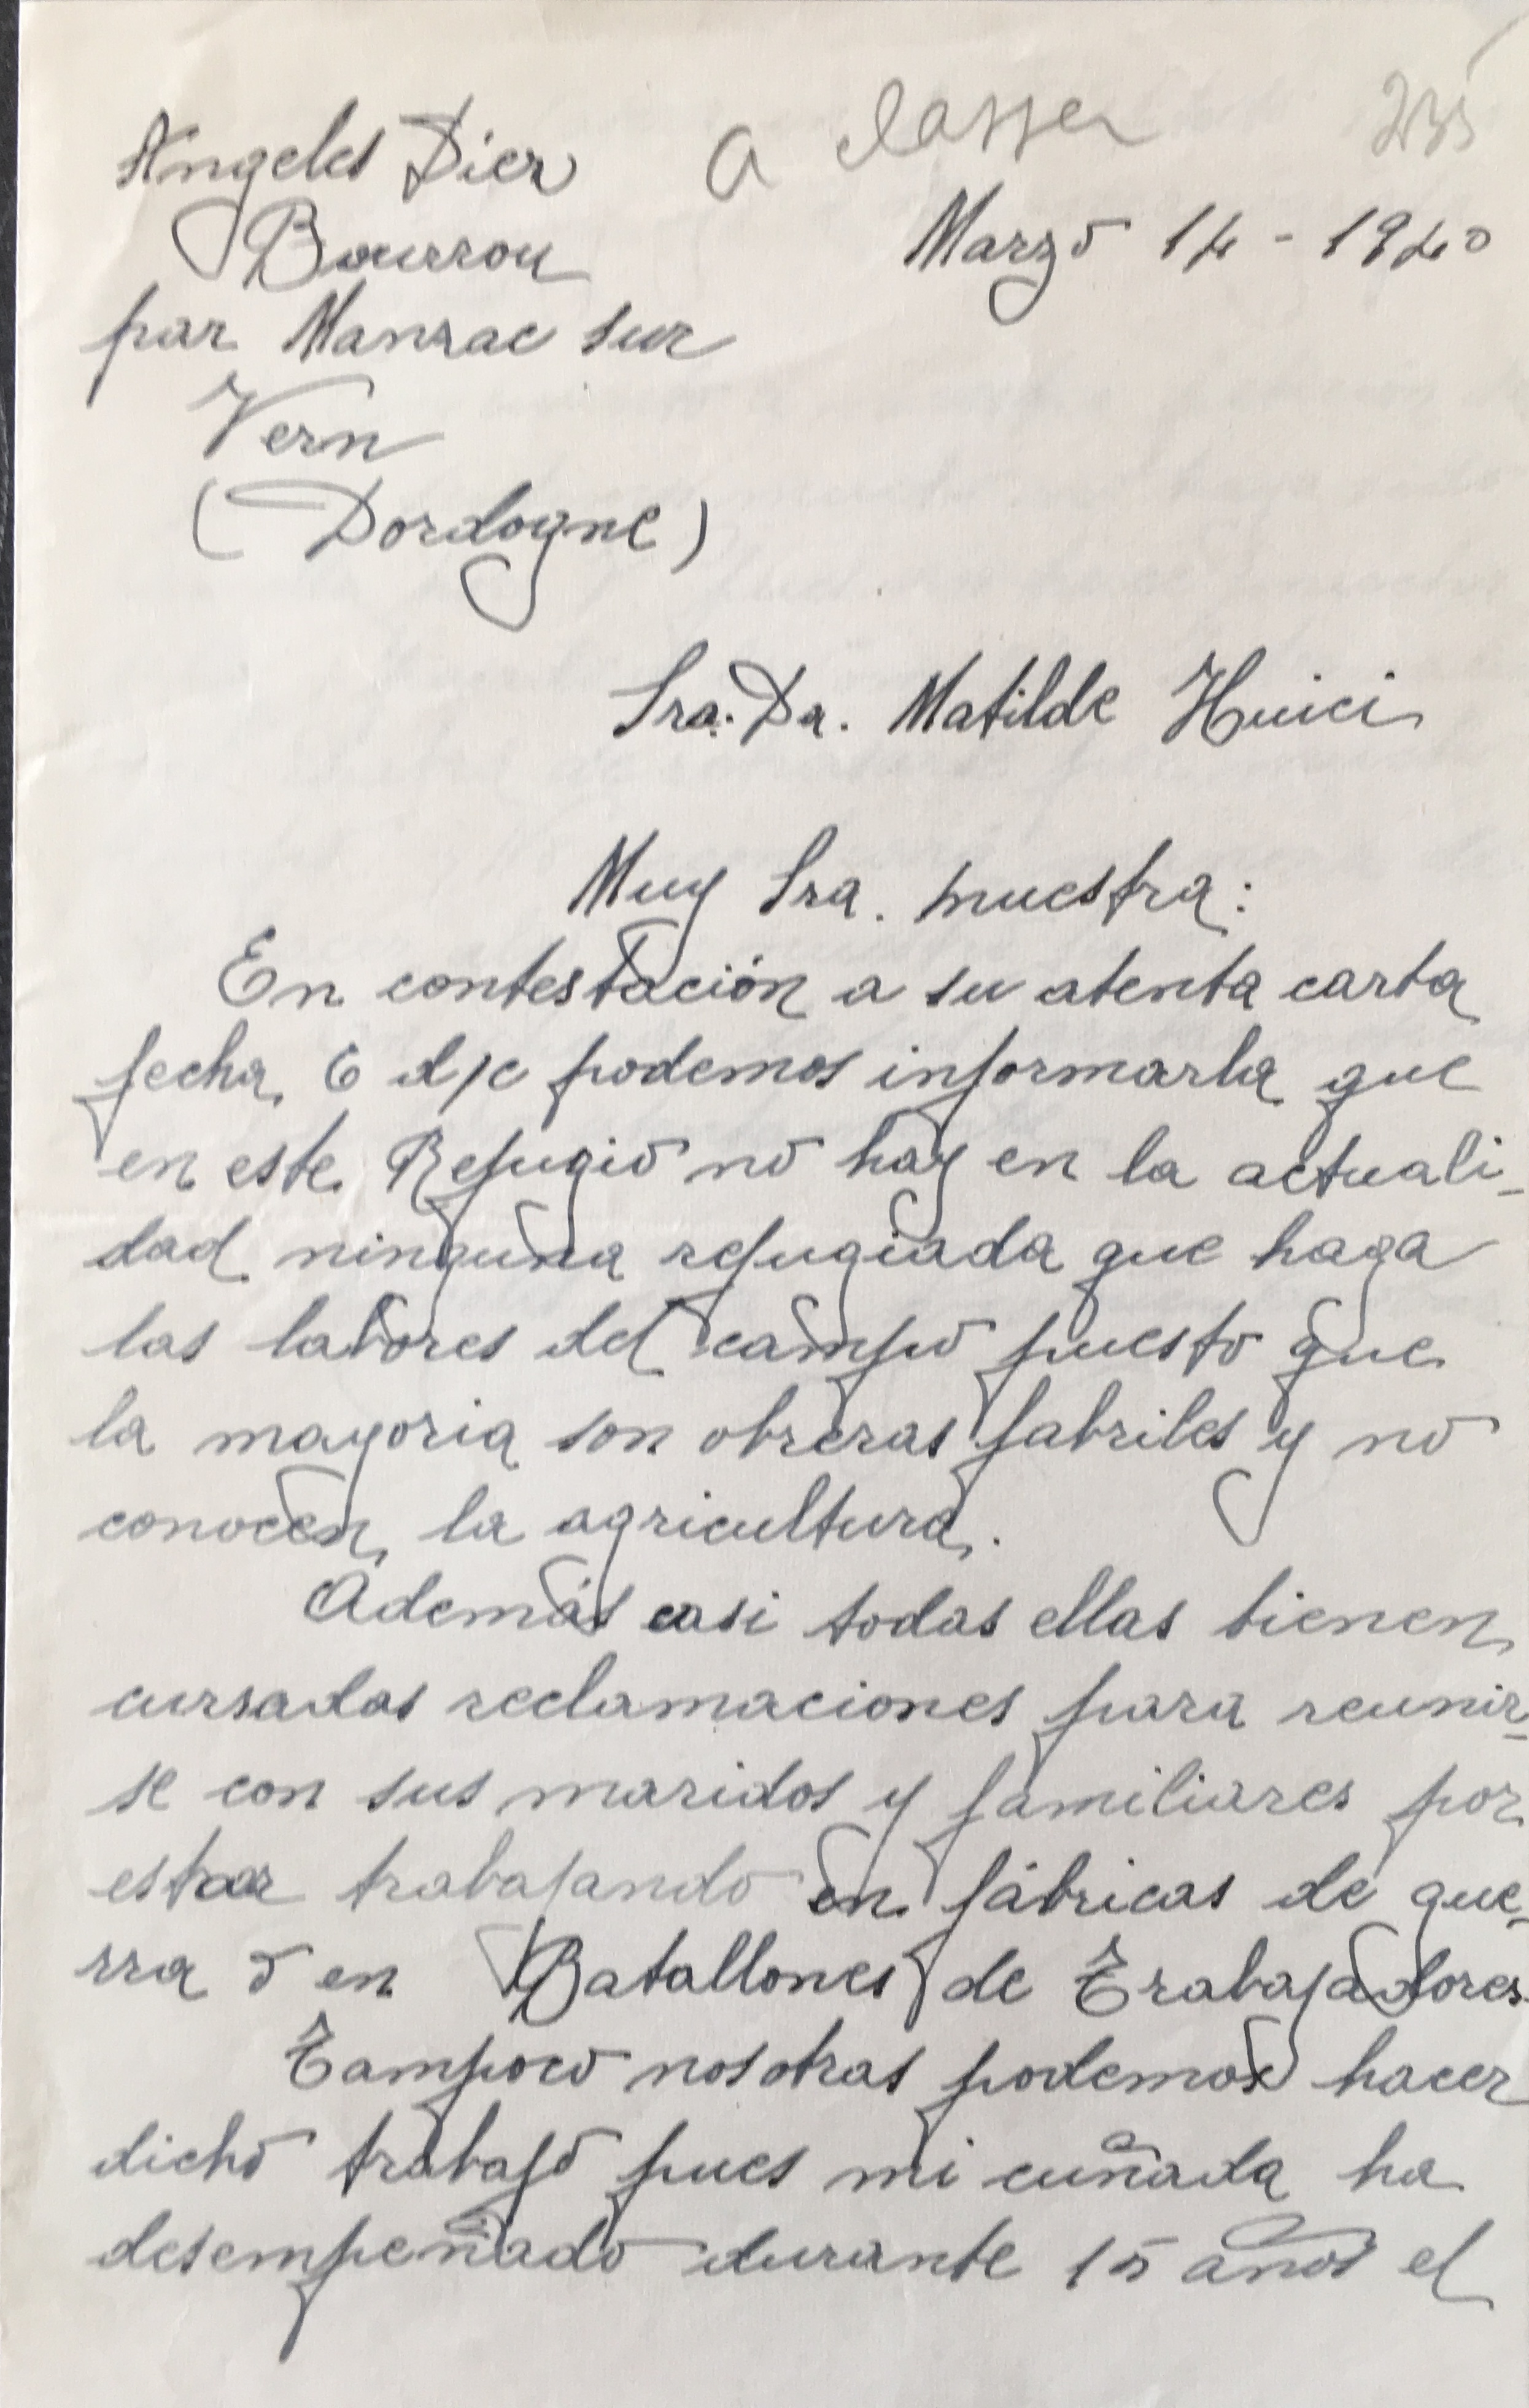 a classer
235
Angeles Dier
Bourrou
Marzo 14 - 1940
par Manzac sur
Vern
(Dordogne)
Sra. Da. Matilde Huici
Muy Sra. nuestra:
En contestación a su atenta carta
fecha 6 d/c podemos informarla que
en este Refugio no hay en la actuali-
dad ninguna refugiada que haga
las labores del campo puesto que
la mayoria son obreras fabriles y no
conocen la agricultura.
Además casi todas ellas tienen
cursadas reclamaciones para reunir-
se con sus maridos y familiares por
estar trabajando en fábricas de gue-
rra o en Batallones de Trabajadores.
Tampoco nosotras podemos hacer
dicho trabajo pues mi cuñada ha
desempeñado durante 15 años el